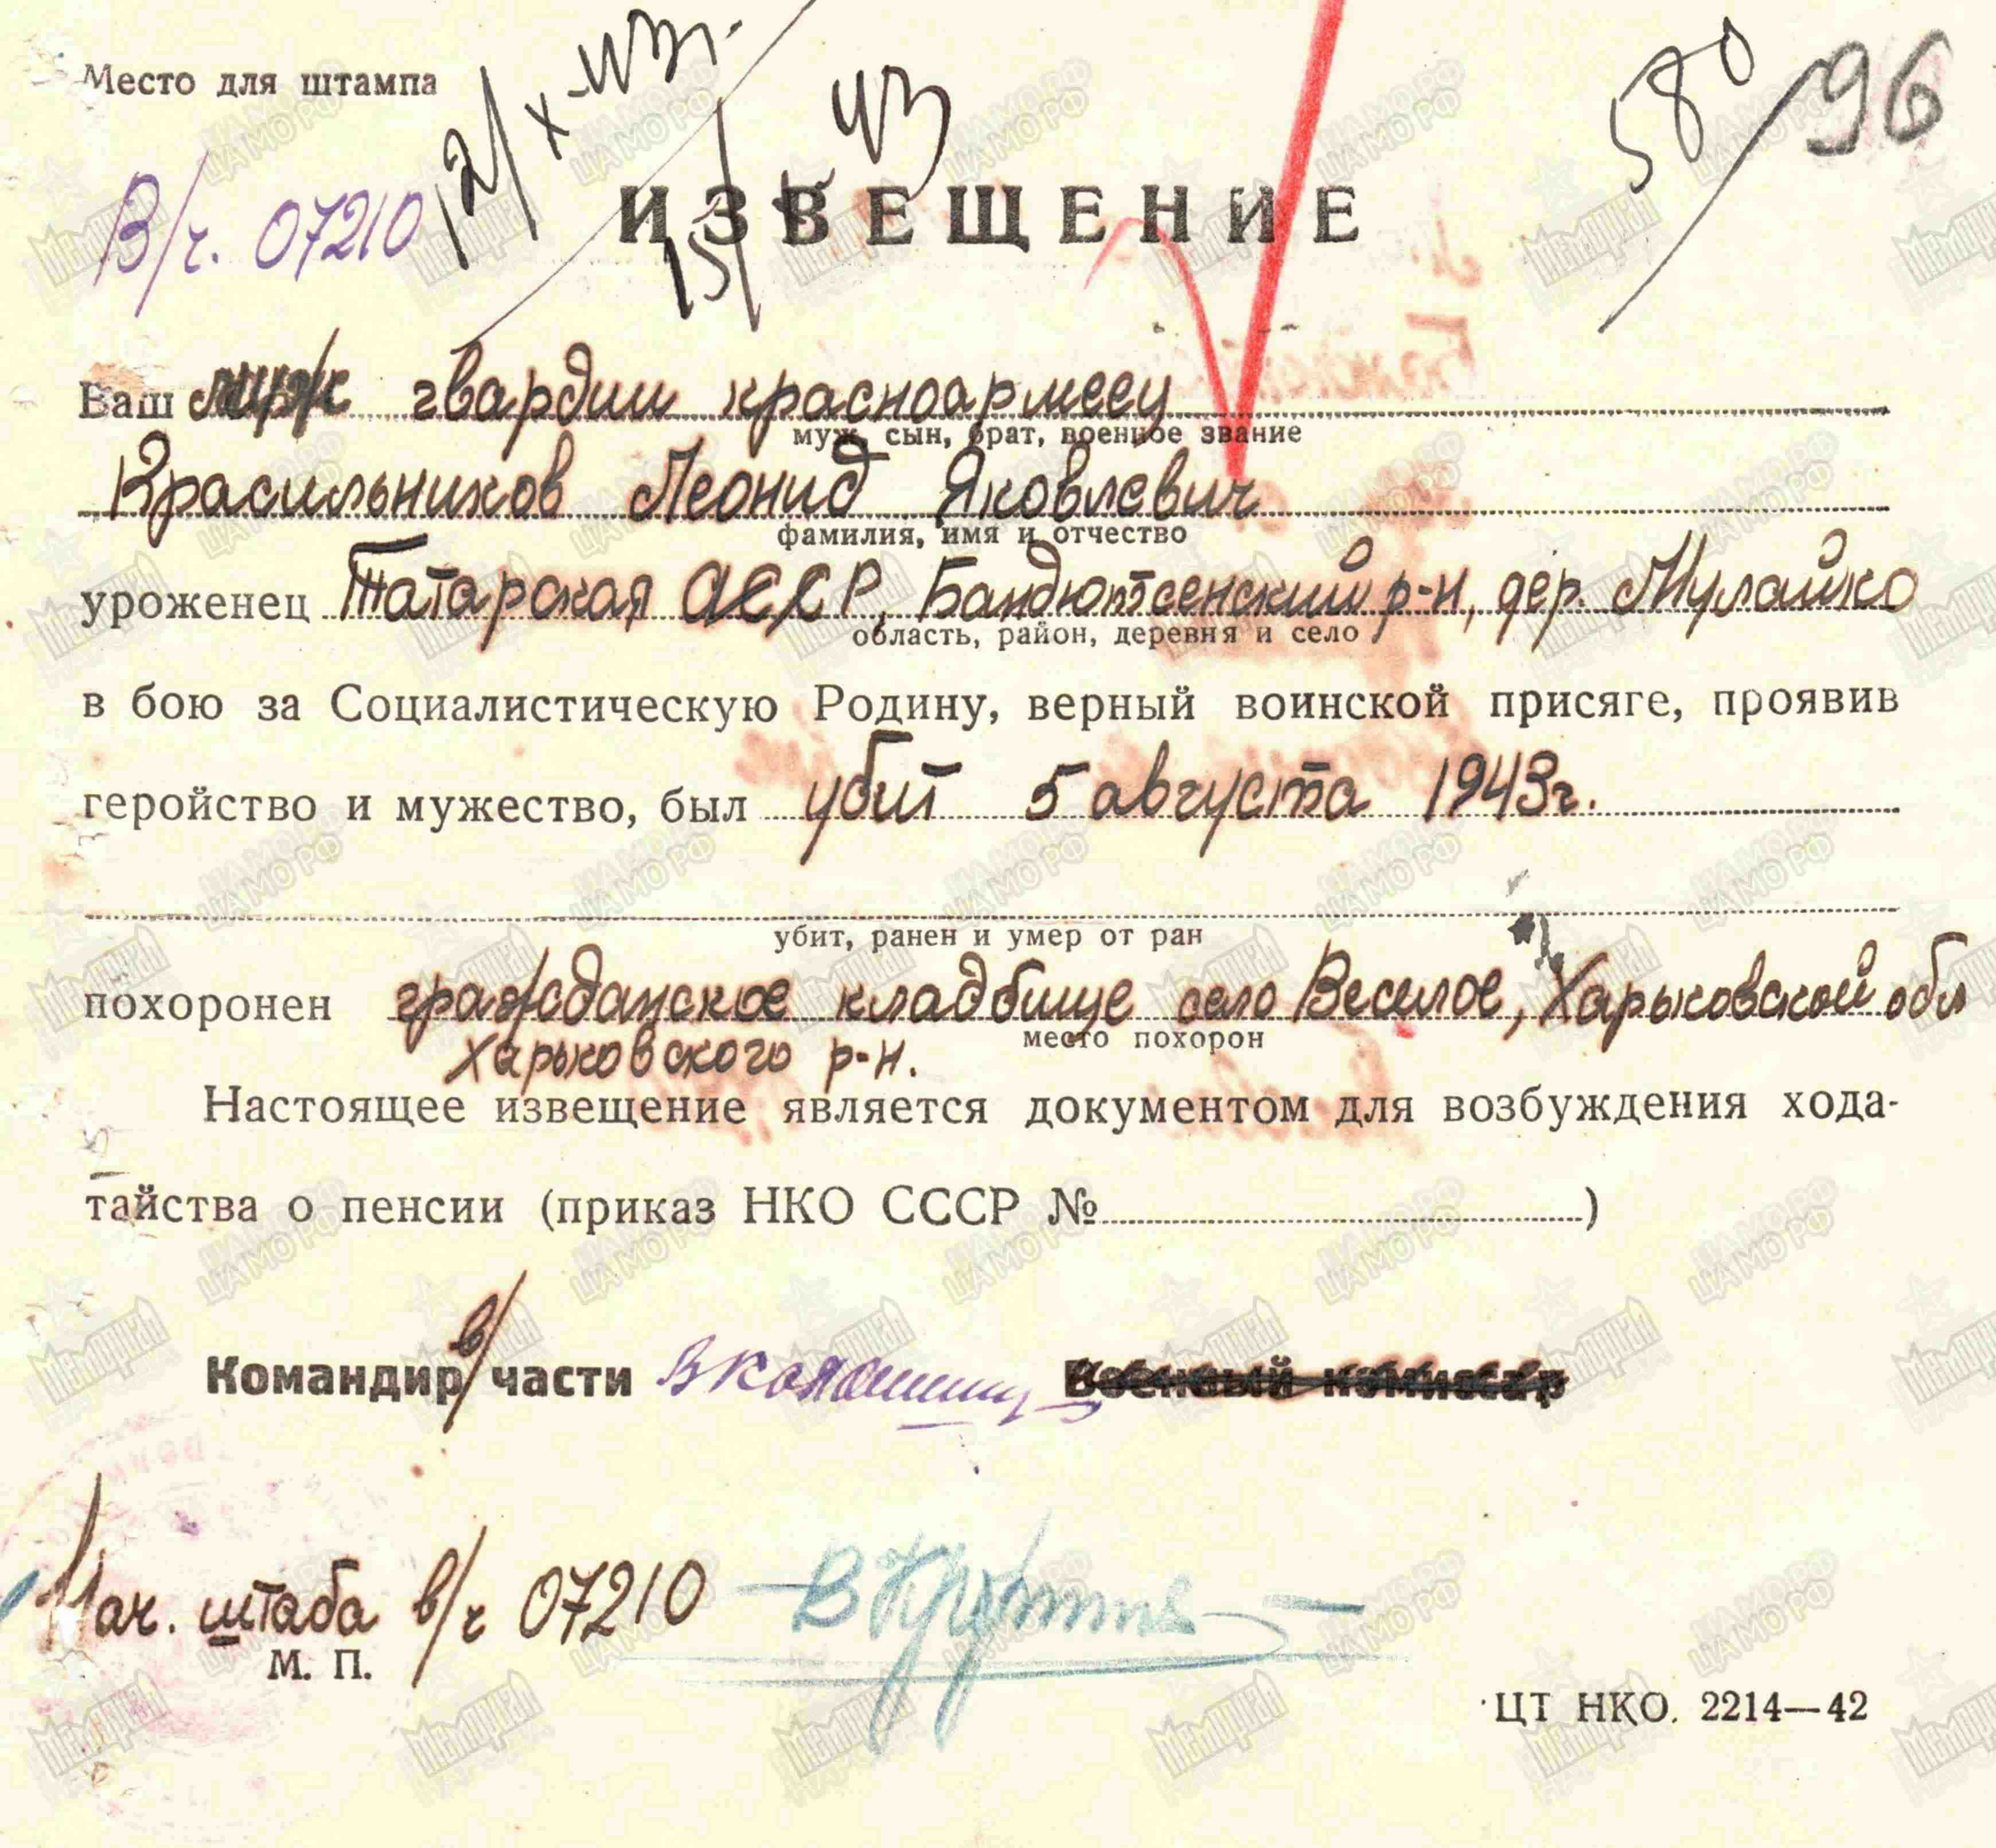 Место для штампа
12/X-43г.
15/X 43
580/96
В/ч. 07210
ИЗВЕЩЕНИЕ
Ваш муж гвардии красноармеец
муж, сын, брат, военное звание
Красильников Леонид Яковлевич
фамилия, имя и отчество
уроженец Татарская АССР, Бандютсенский р-н, дер. Мулайко
область, район, деревня и село
в бою за Социалистическую Родину, верный воинской присяге, проявив
геройство и мужество, был убит 5 августа 1943г.
убит, ранен и умер от ран
похоронен гражданское кладбище село Веселое, Харьковской обл
место похорон
Харьковского р-н.
Настоящее извещение является документом для возбуждения хода-
тайства о пенсии (приказ НКО СССР № )
Командир в/части Военный комиссар
Нач. штаба в/ч 07210
М. П.
ЦТ НКО. 2214—42